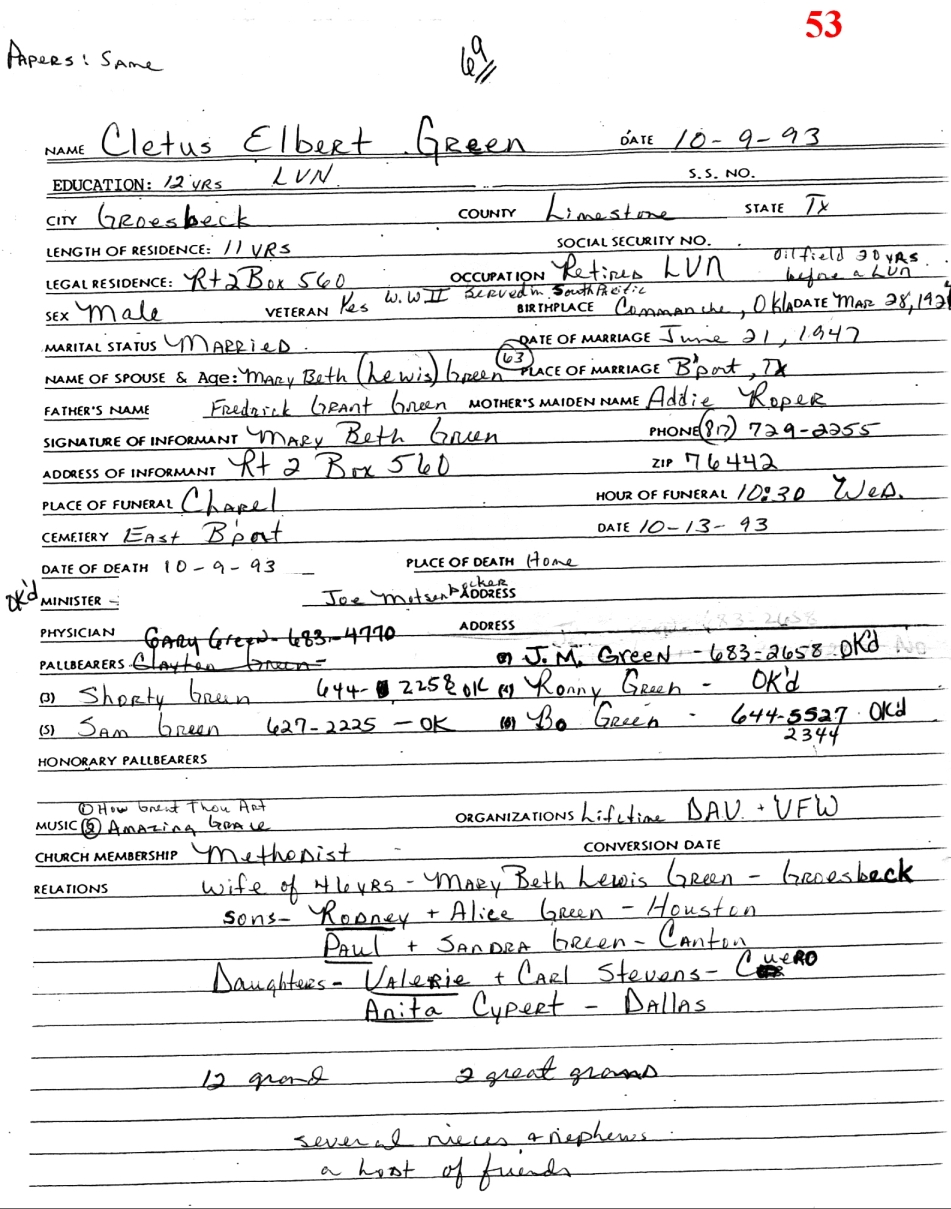 53
PAPERS: SAME
69
NAME Cletus Elbert Green DATE 10-9-93
EDUCATION: 12 YRS LVN S.S. NO.
CITY Groesbeck COUNTY Limestone STATE Tx
LENGTH OF RESIDENCE: 11 YRS SOCIAL SECURITY NO.
LEGAL RESIDENCE: Rt 2 Box 560 OCCUPATION Retired LVN Oilfield 20 YRS before a LVN
SEX Male VETERAN Yes W.W II Served in South Pacific BIRTHPLACE Commanche, Okla DATE MAR 28, 192
MARITAL STATUS MARRIED DATE OF MARRIAGE June 21, 1947
NAME OF SPOUSE & Age: Mary Beth (Lewis) Green 63 PLACE OF MARRIAGE B'port, TX
FATHER'S NAME Fredrick Grant Green MOTHER'S MAIDEN NAME Addie Roper
SIGNATURE OF INFORMANT Mary Beth Green PHONE (817) 729-2255
ADDRESS OF INFORMANT Rt 2 Box 560 ZIP 76442
PLACE OF FUNERAL Chapel HOUR OF FUNERAL 10:30 Wed.
CEMETERY East B'port DATE 10-13-93
DATE OF DEATH 10-9-93 PLACE OF DEATH Home
OK'd MINISTER - Joe Motsenbocker ADDRESS
PHYSICIAN Gary Green - 683-4770 ADDRESS
PALLBEARERS Clayton Green - (2) J.M. Green - 683-2658 OK'd
(3) Shorty Green 644-2258 OK (4) Ronny Green - OK'd
(5) Sam Green 627-2225 - OK (6) Bo Green - 644-5527 OK'd
2344
HONORARY PALLBEARERS
① How Great Thou Art
MUSIC ② Amazing Grace ORGANIZATIONS Lifetime DAV + VFW
CHURCH MEMBERSHIP Methodist CONVERSION DATE
RELATIONS wife of 46 YRS - Mary Beth Lewis Green - Groesbeck
Sons - Rodney + Alice Green - Houston
Paul + Sandra Green - Canton
Daughters - Valerie + Carl Stevens - Cuero
Anita Cypert - Dallas
12 grand 2 great grands
several nieces & nephews
a host of friends